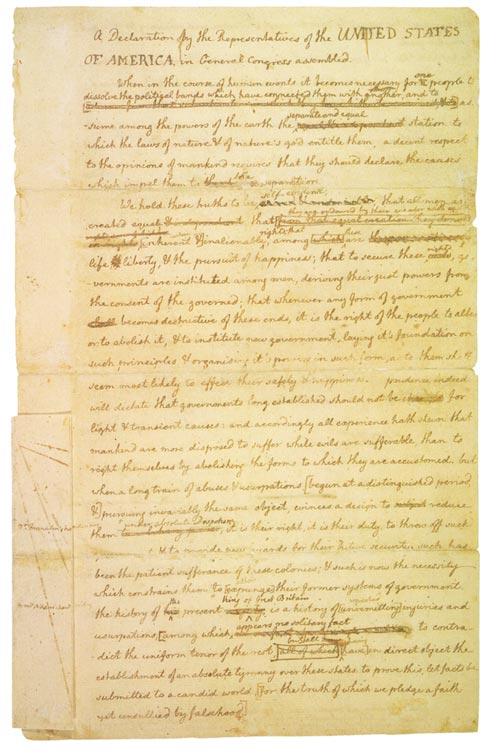 A Declaration by the Representatives of the UNITED STATES
OF AMERICA, in General Congress assembled.
When in the course of human events it becomes necessary for one people to
dissolve the political bands which have connected them with another, and to
as
separate and equal
sume among the powers of the earth the station to
which the laws of nature & of nature's god entitle them, a decent respect
to the opinions of mankind requires that they should declare the causes
which impel them to the separation.
self-evident
We hold these truths to be that all men are
they are endowed by their creator with
created equal that
rights that
inherent & inalienable, among which are
life liberty, & the pursuit of happiness; that to secure these rights, go
vernments are instituted among men, deriving their just powers from
the consent of the governed; that whenever any form of government
becomes destructive of these ends, it is the right of the people to alter
or to abolish it, & to institute new government, laying it's foundation on
such principles & organising it's powers in such form, as to them shall
seem most likely to effect their safety & happiness. prudence indeed
will dictate that governments long established should not be for
light & transient causes: and accordingly all experience hath shewn that
mankind are more disposed to suffer while evils are sufferable, than to
right themselves by abolishing the forms to which they are accustomed. but
when a long train of abuses & usurpations [begun at a distinguished period
&] pursuing invariably the same object, evinces a design to reduce
under absolute Despotism
them it is their right, it is their duty, to throw off such
& to provide new guards for their future security. such has
been the patient sufferance of these colonies; & such is now the necessity
which constrains them to [expunge] their former systems of government.
king of Great Britain
the history of the present is a history of [unremitting] injuries and
appears no solitary fact
usurpations, [among which, to contra-
dict the uniform tenor of the rest [all of which] have in direct object the
establishment of an absolute tyranny over these states. to prove this, let facts be
submitted to a candid world, [for the truth of which we pledge a faith
yet unsullied by falsehood]